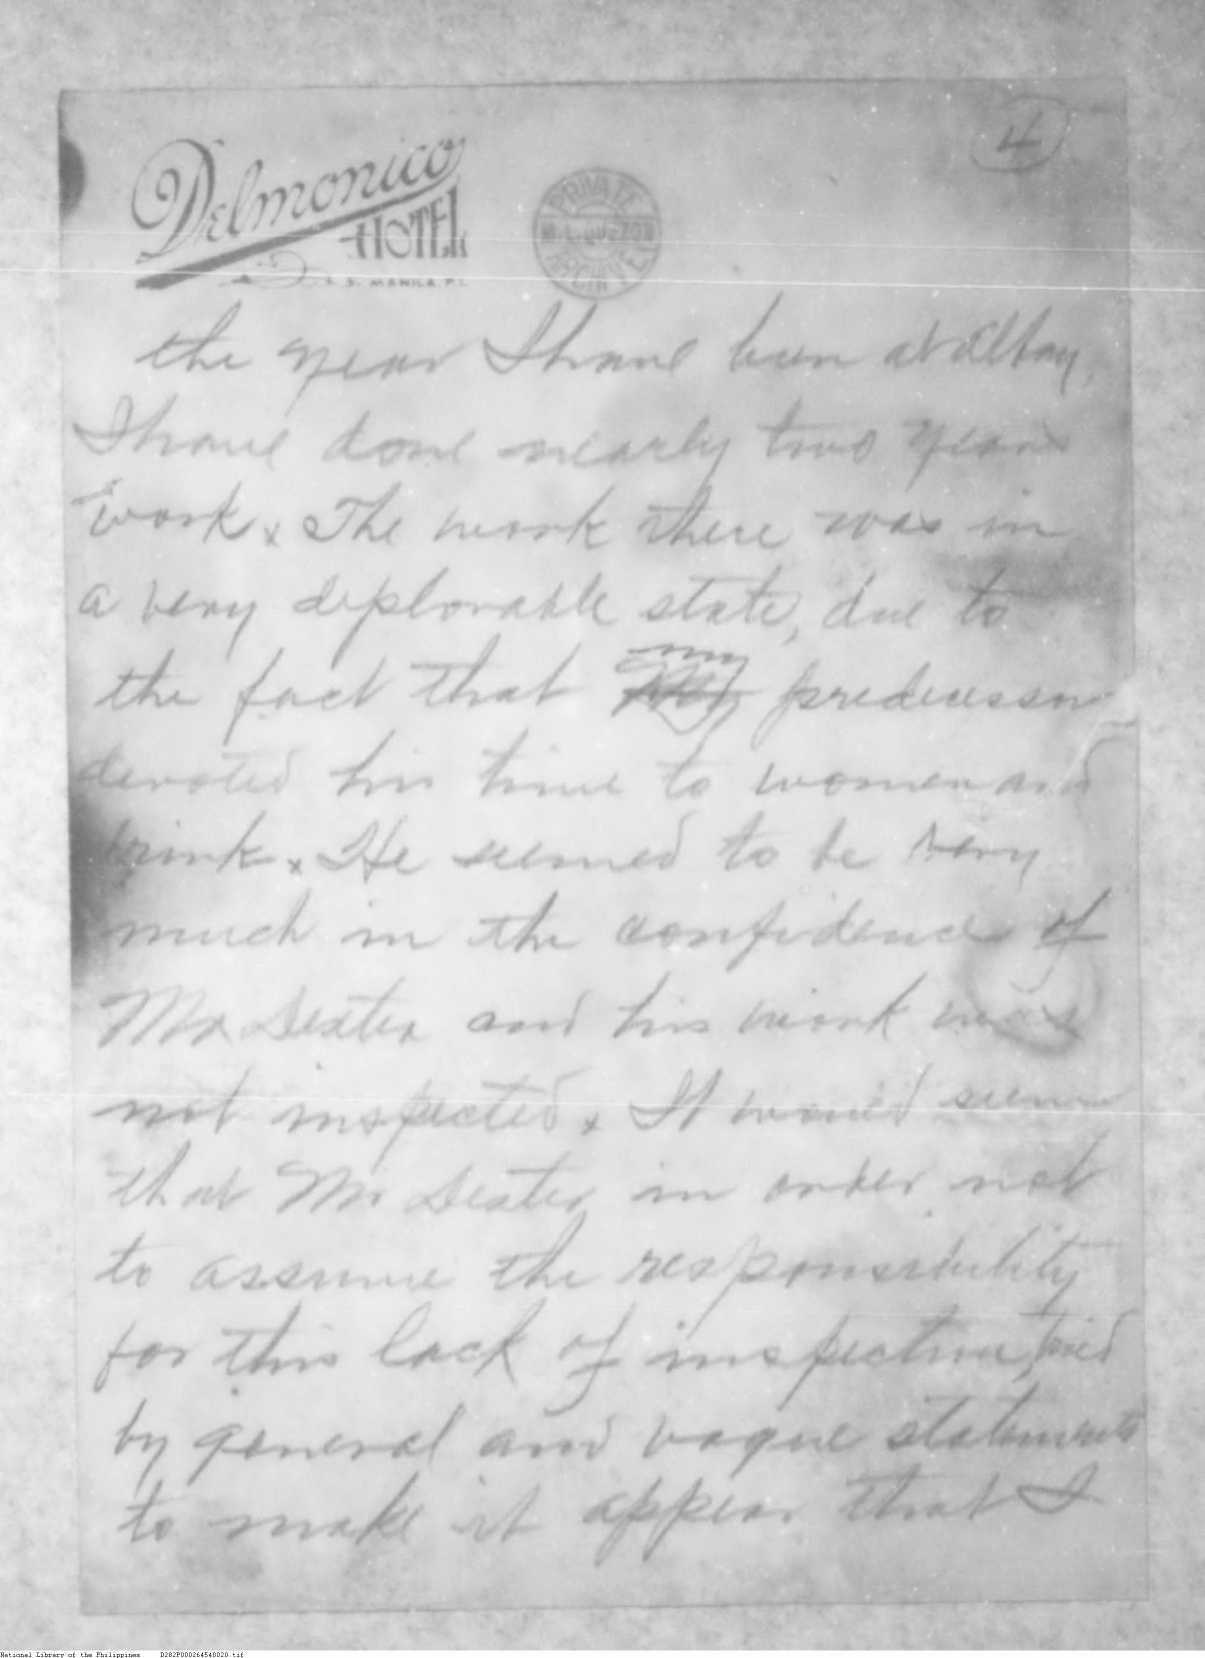 4
Delmonico
HOTEL
MANILA, P.I.
PRIVATE
M. L. QUEZON
ARCHIVE
the year I have been at Albay,
I have done nearly two years
work. The work there was in
a very deplorable state, due to
the fact that my predecessor
devoted his time to women and
drink. He seemed to be very
much in the confidence of
Mr Dexter and his work was
not inspected. It would seem
that Mr Dexter, in order not
to assume the responsibility
for this lack of inspection, tried
by general and vague statements
to make it appear that I
National Library of the Philippines D282P000264540020.tif